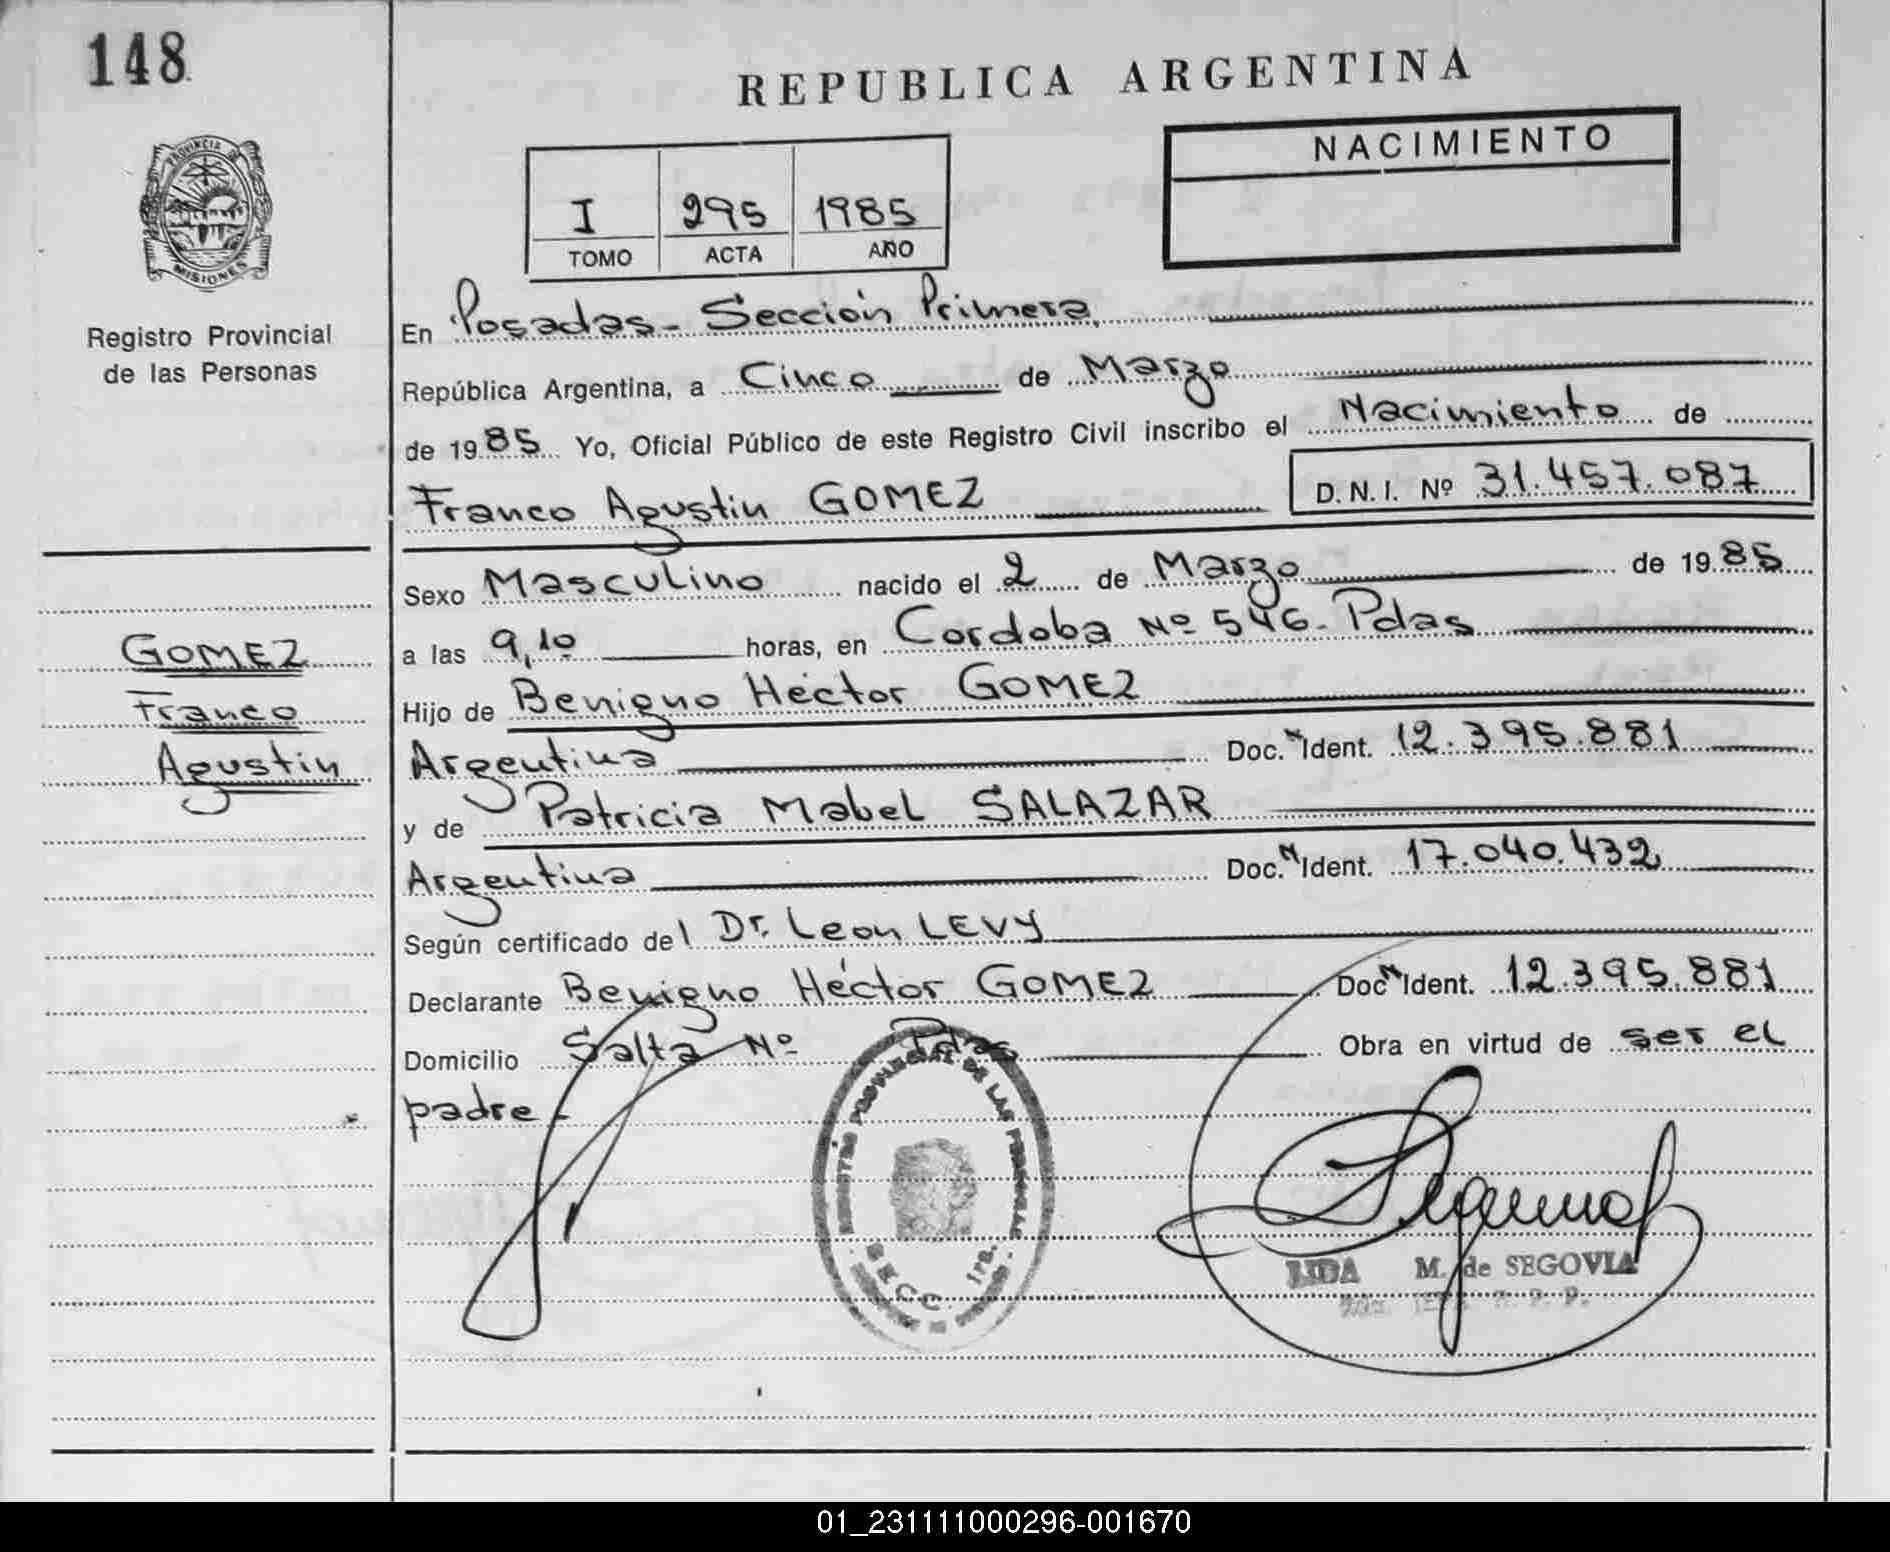 148
REPUBLICA ARGENTINA
NACIMIENTO
PROVINCIA DE
MISIONES
I 295 1985
TOMO ACTA AÑO
Registro Provincial
de las Personas
En Posadas - Sección Primera
República Argentina, a Cinco de Marzo
de 1985 Yo, Oficial Público de este Registro Civil inscribo el Nacimiento de
Franco Agustin GOMEZ D. N. I. Nº 31.457.087
Sexo Masculino nacido el 2 de Marzo de 1985
GOMEZ
Franco
Agustin
a las 9,10 horas, en Cordoba Nº 546 - Pdas
Hijo de Benigno Héctor GOMEZ
Argentina Doc. N Ident. 12.395.881
y de Patricia Mabel SALAZAR
Argentina Doc. N Ident. 17.040.432
Según certificado del Dr. Leon LEVY
Declarante Benigno Héctor GOMEZ Doc N Ident. 12.395.881
Domicilio Salta Nº Pdas Obra en virtud de ser el
padre -
PROVINCIAL DE LAS PERSONAS
SECC. 1ra.
LIDA M. de SEGOVIA
01_231111000296-001670